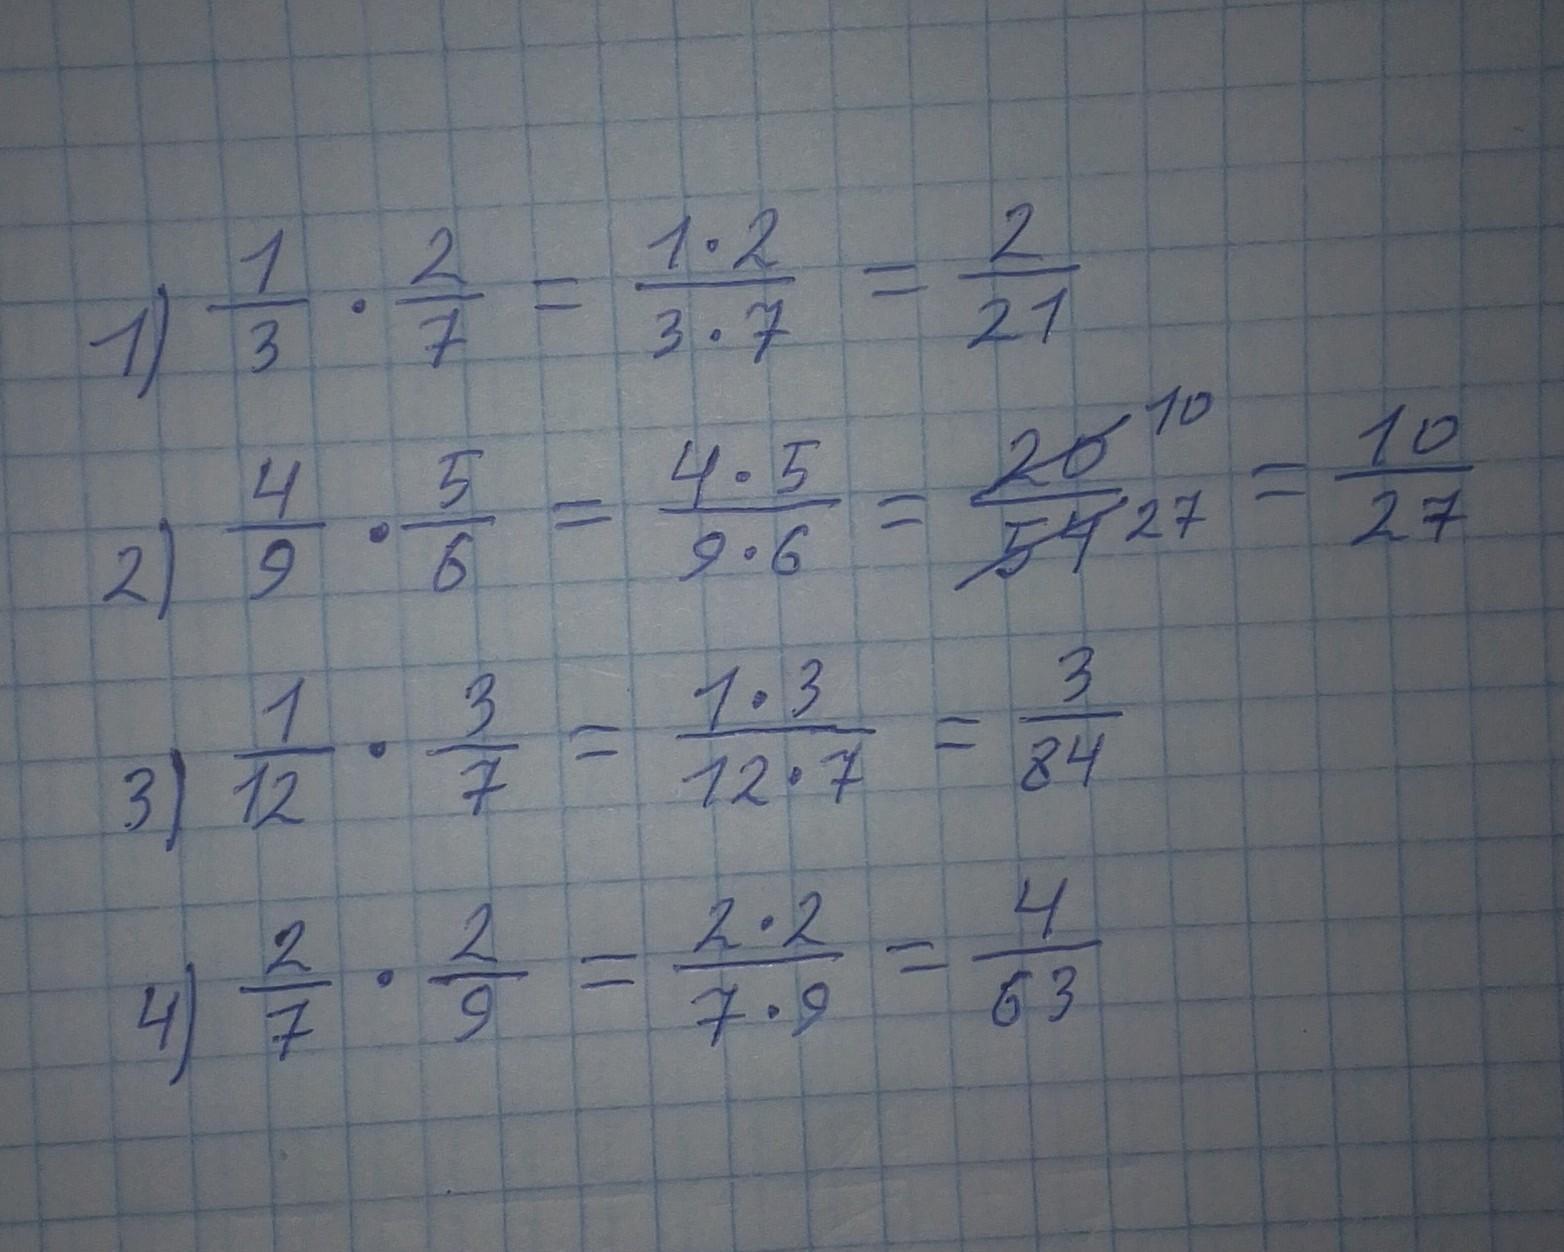 1) 1/3 · 2/7 = 1·2/3·7 = 2/21
2) 4/9 · 5/6 = 4·5/9·6 = 20/54 10/27 = 10/27
3) 1/12 · 3/7 = 1·3/12·7 = 3/84
4) 2/7 · 2/9 = 2·2/7·9 = 4/63